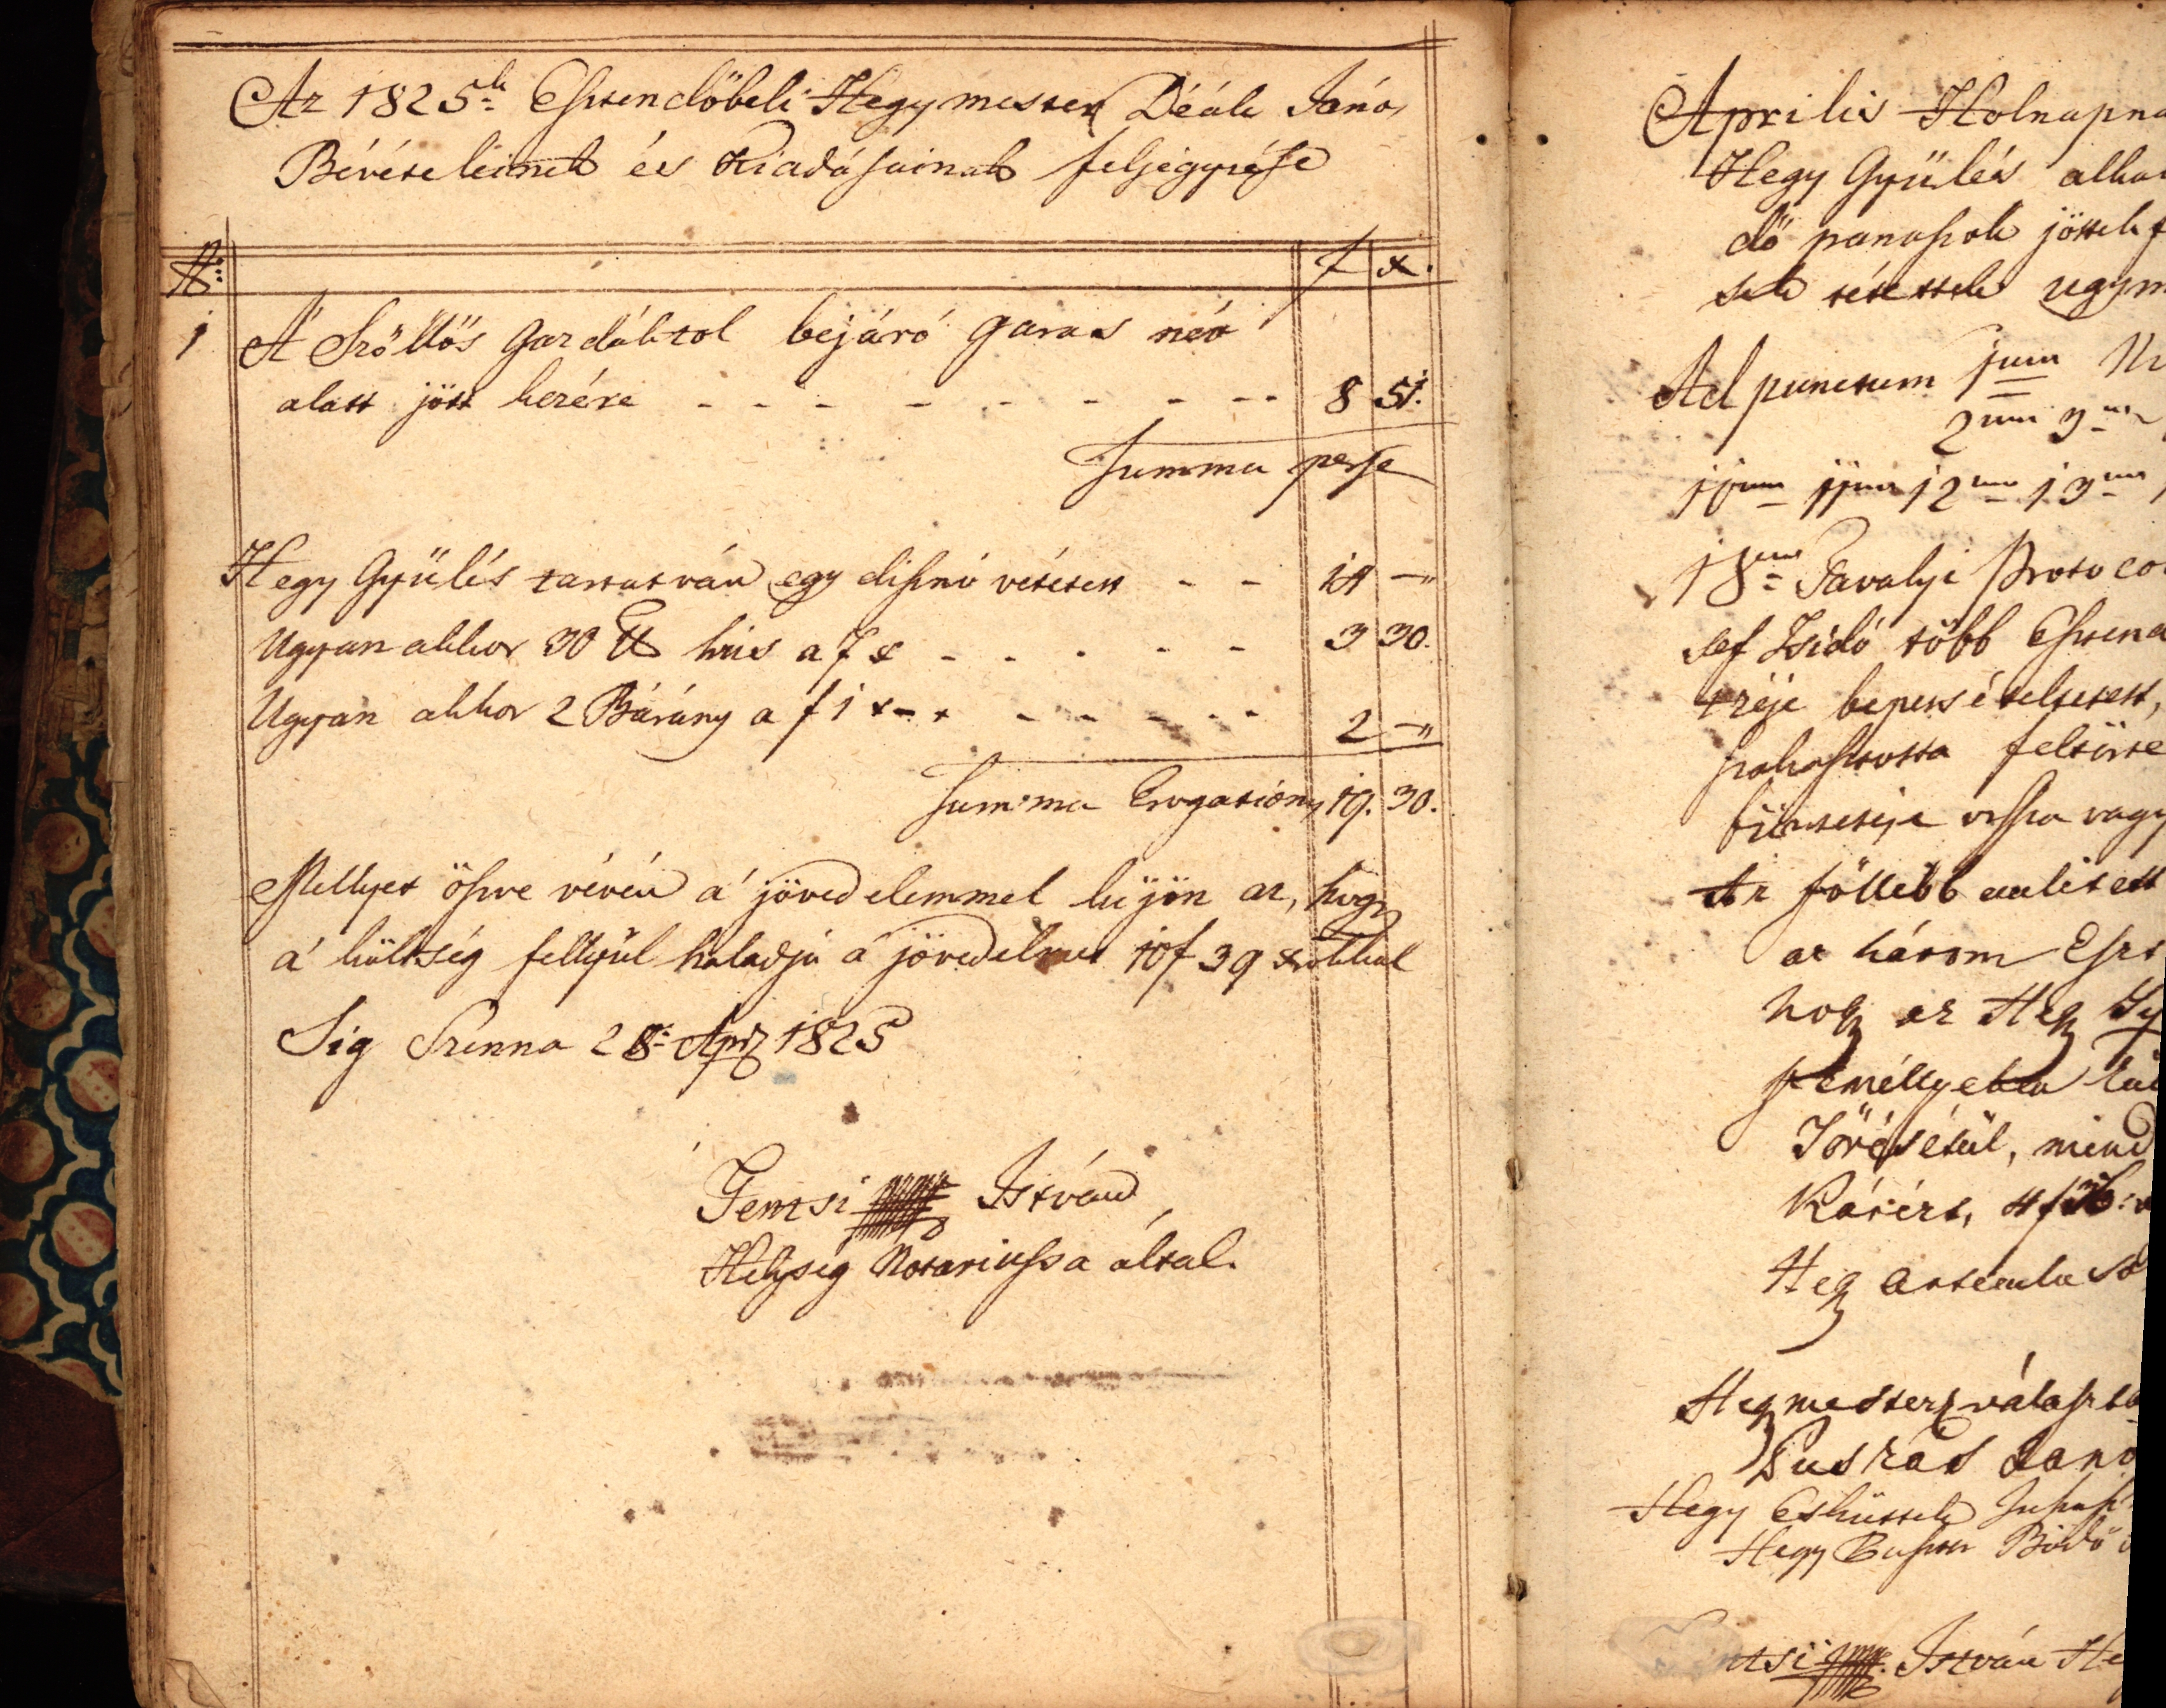 Az 1825ik Esztendőbeli Hegymester Déák Jáno,
Bévételeinek és Kiadásainak feljegyzése
N: f x.
1 A' Szöllös Gazdáktol bejáró garas név
alatt jött kezére - - - - - - - - 8 51.
Summa perse
Hegy Gyülés tartatván egy disznó vétetett - - 14 —"
Ugyan akkor 30 ℔ hus a 7 x - - - - - 3 30.
Ugyan akkor 2 Bárány a f 1 x - - - - - - 2 —"
Summa Erogationis 19. 30.
Mellyet öszve vévén a' jövedelemmel kijön az, hogy
a' költség fellyül haladja a' jövedelmet 10f 39 xrokkal
Sig Szenna 28: Apr 1825
Jentsi István
Helység Notariussa által.
Aprilis Holnapna
Hegy Gyülés alka
dő panaszok jöttek f
sek tétettek ugym
Ad punctum 1um
2um 3um
10um 11um 12um 13um
18um Tavalyi Protoco
sef Isidó több Eszten
réje bepersételtetett,
szakasztotta feltörte
büntetése vissza vagy
Az föllebb emlitett
az három Eszt
hogy az Hegy
személlyeket
Törésétül, mind
Kárért, 4 f
Hegy
Hegymester választ
Puskás Jáno
Hegy Eskuttek
Hegy Bödö
ntsi István He